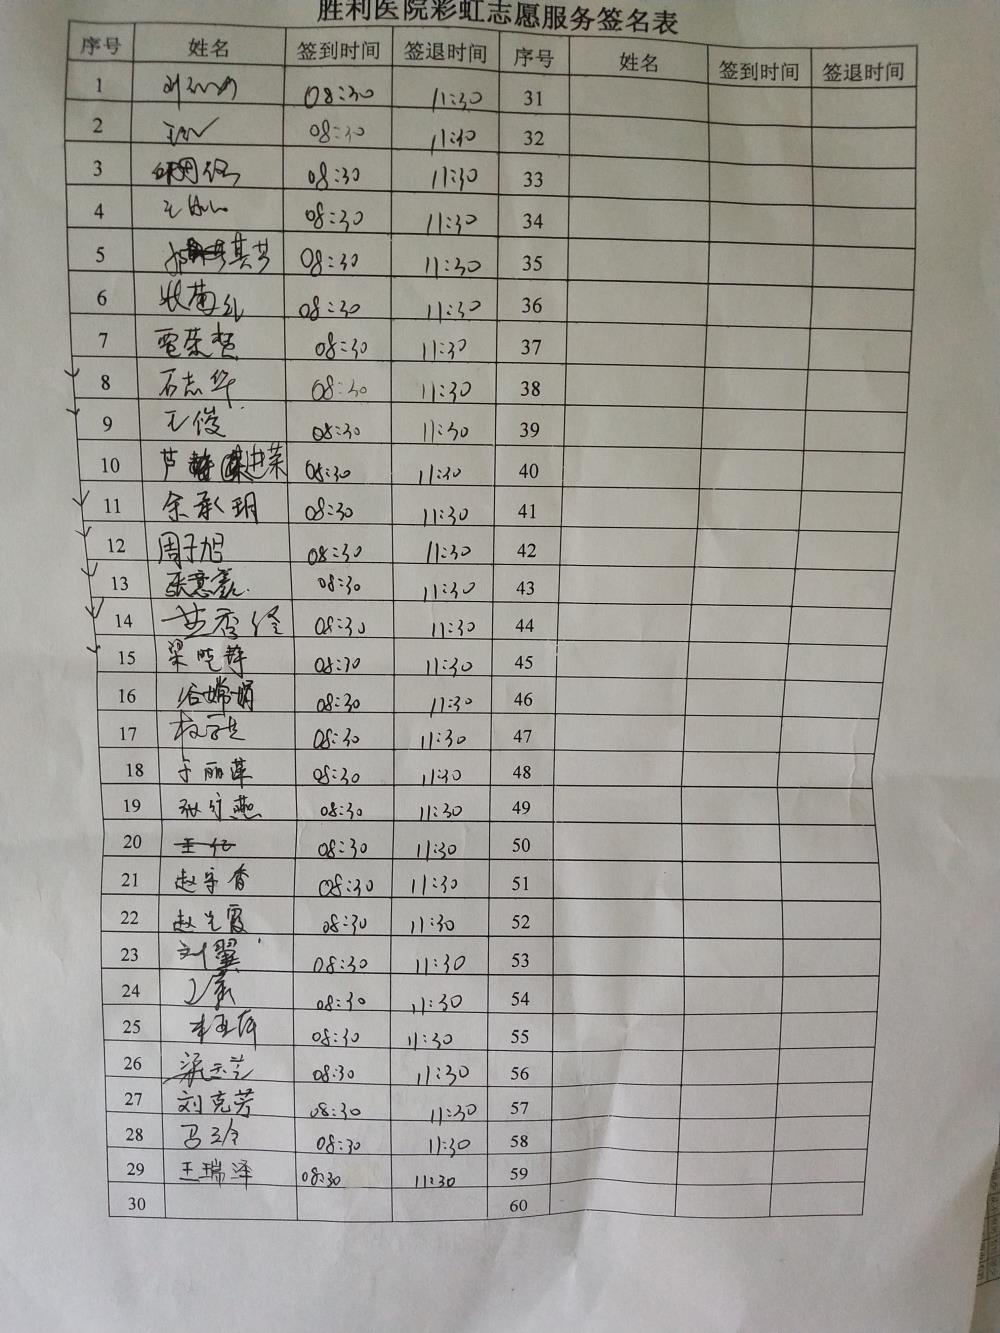 胜利医院彩虹志愿服务签名表
序号 姓名 签到时间 签退时间 序号 姓名 签到时间 签退时间
1 08:30 11:30 31
2 08:30 11:30 32
3 08:30 11:30 33
4 08:30 11:30 34
5 其芳 08:30 11:30 35
6 08:30 11:30 36
7 08:30 11:30 37
8 石志华 08:30 11:30 38
9 王俊 08:30 11:30 39
10 芦 进荣 08:30 11:30 40
11 余承玥 08:30 11:30 41
12 周子旭 08:30 11:30 42
13 08:30 11:30 43
14 08:30 11:30 44
15 梁晓静 08:30 11:30 45
16 嫦娟 08:30 11:30 46
17 08:30 11:30 47
18 于丽萍 08:30 11:30 48
19 08:30 11:30 49
20 08:30 11:30 50
21 赵宗香 08:30 11:30 51
22 赵光霞 08:30 11:30 52
23 刘翼 08:30 11:30 53
24 08:30 11:30 54
25 08:30 11:30 55
26 08:30 11:30 56
27 刘克芳 08:30 11:30 57
28 08:30 11:30 58
29 王瑞泽 08:30 11:30 59
30 60